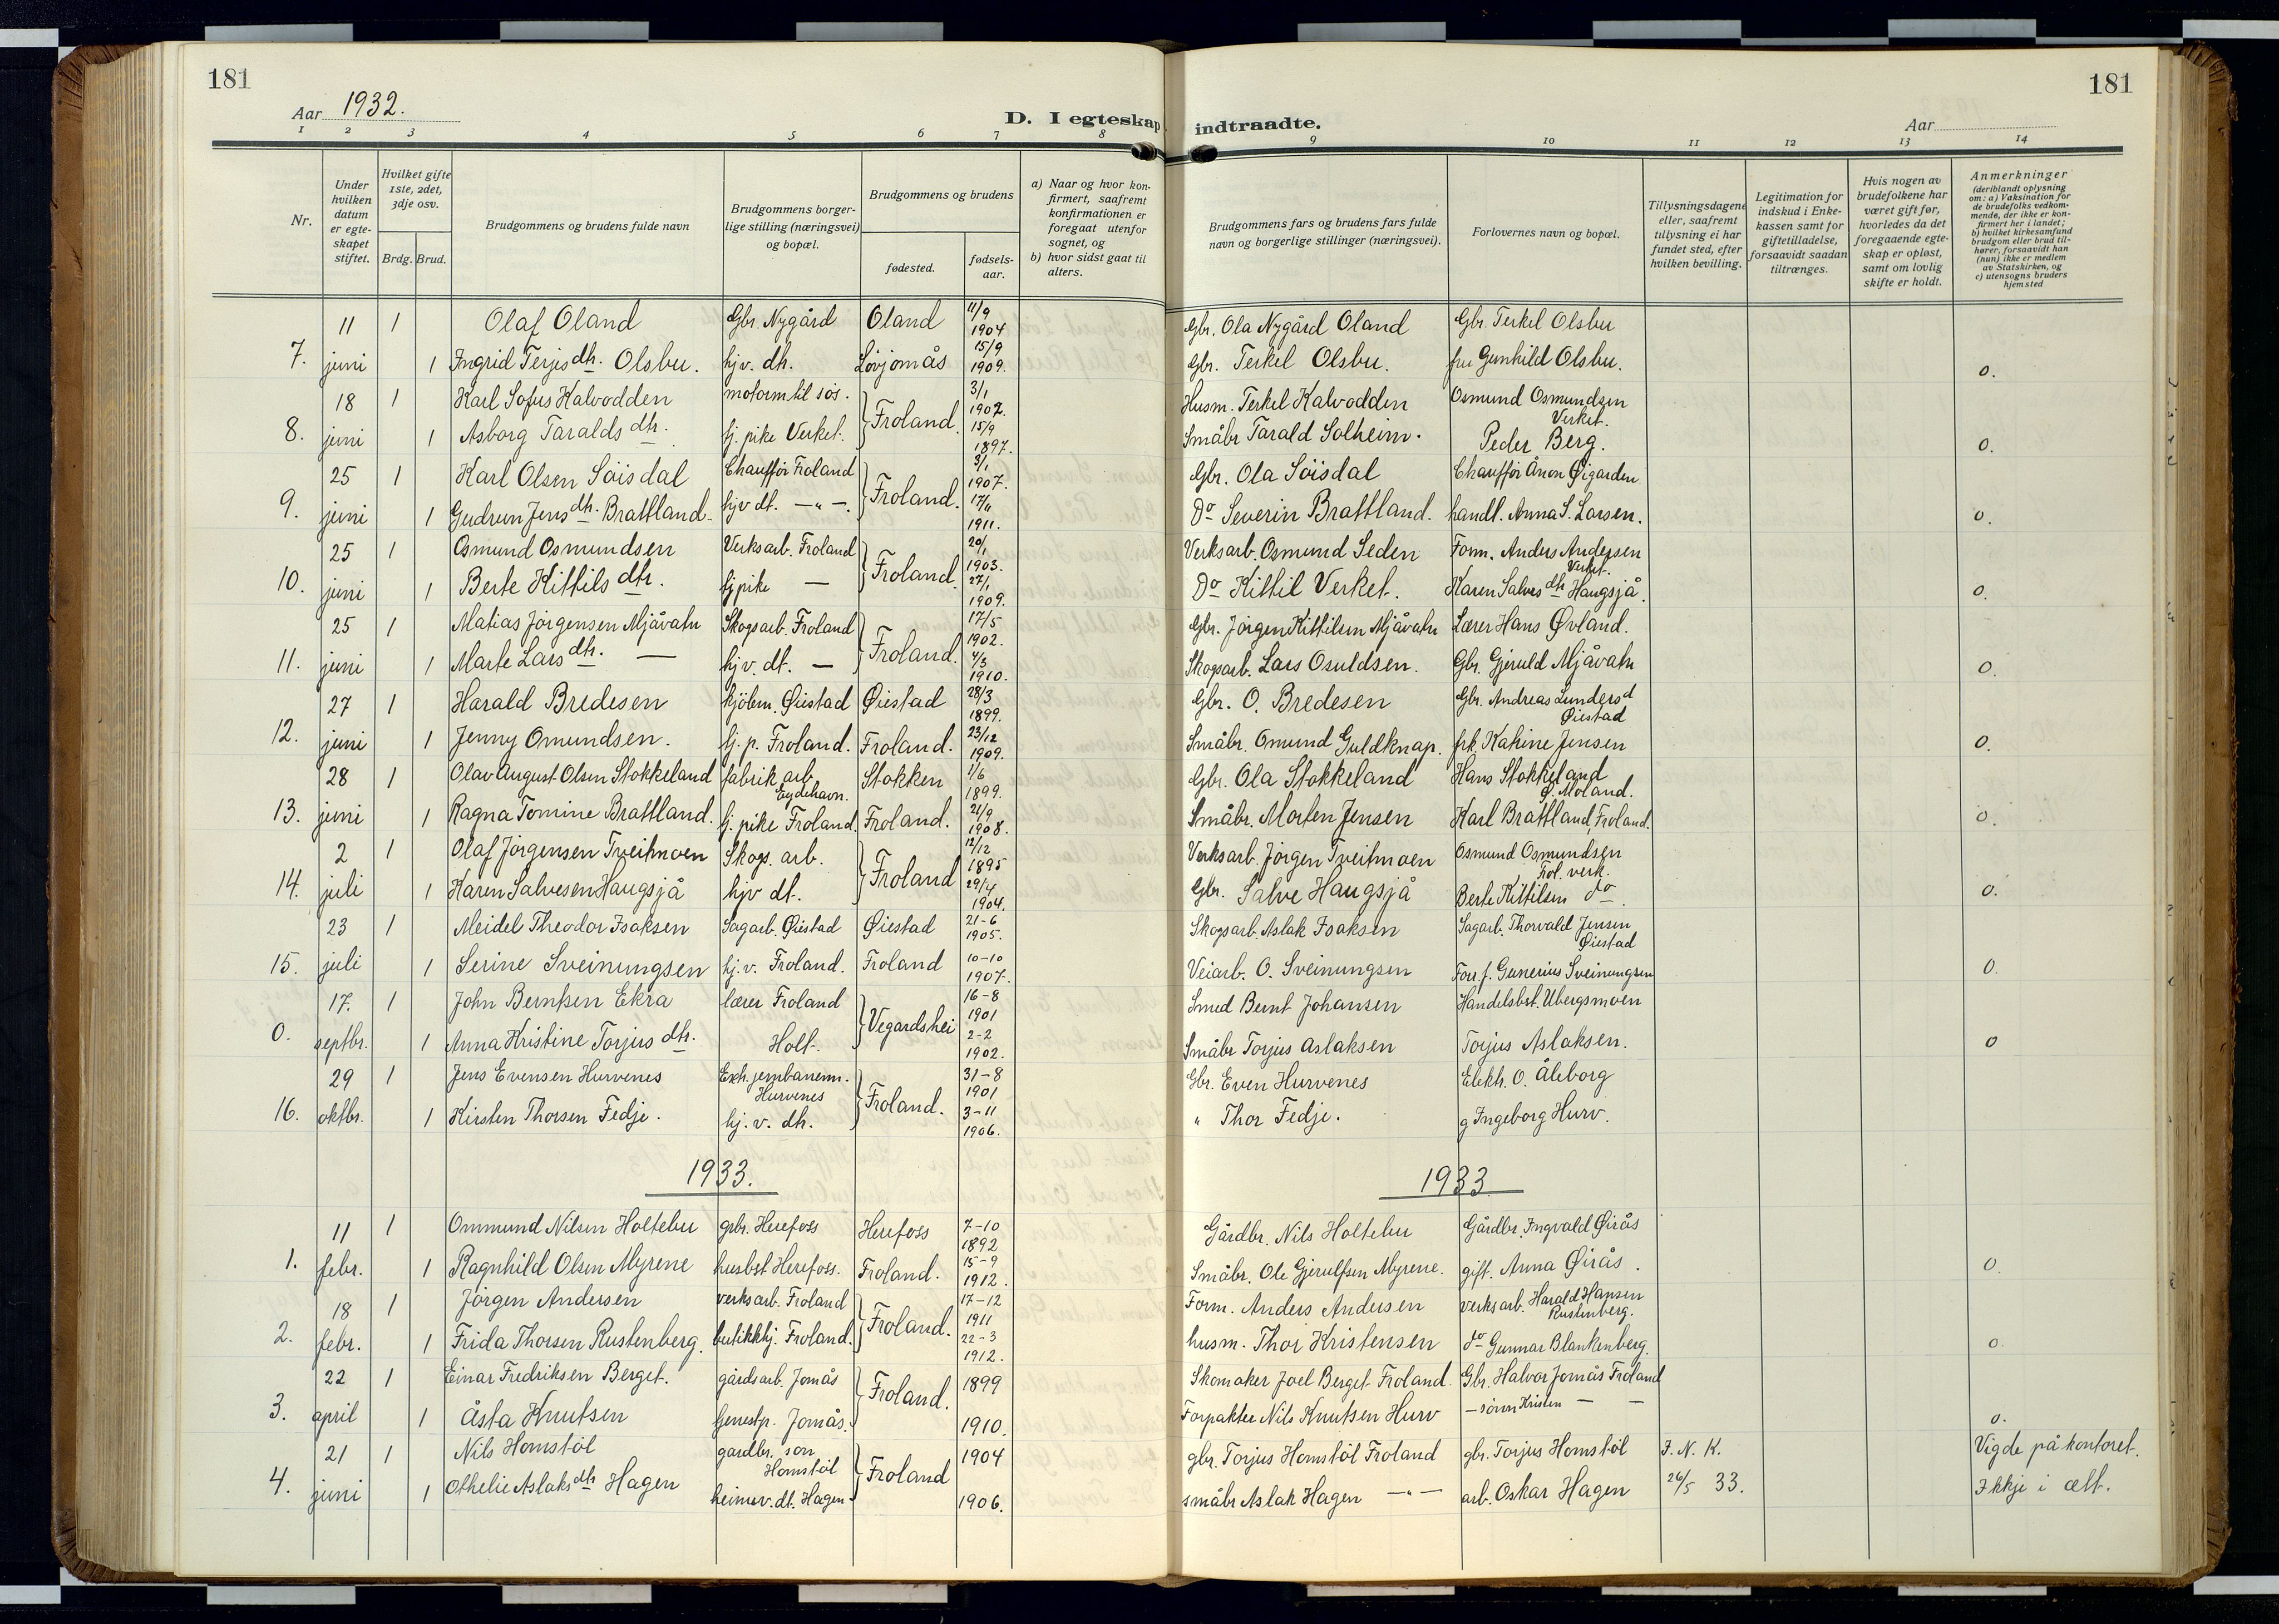 181
Aar 1932.
D. I egteskap
1 2 3 4 5 6 7 8
Nr.
Under hvilken datum er egteskapet stiftet.
Hvilket gifte 1ste, 2det, 3dje osv.
Brdg. Brud.
Brudgommens og brudens fulde navn
Brudgommens borgerlige stilling (næringsvei) og bopæl.
Brudgommens og brudens
fødested.
fødselsaar.
a) Naar og hvor konfirmert, saafremt konfirmationen er foregaat utenfor sognet, og
b) hvor sidst gaat til alters.
11 1 Olaf Oland Gbr. Nygård Oland 11/9 1904
7. juni 1 Ingrid Terjis dtr. Olsbu. hjv. dtr. Løvjomås 15/9 1909.
18 1 Karl Sofus Kalvodden motormtil sös. Froland 3/1 1907.
8. juni 1 Asborg Taralds dtr. tj. pike Verket. 15/9 1897.
25 1 Karl Olsen Söisdal Chauffør Froland Froland. 3/1 1907.
9. juni 1 Gudrun Jens dtr. Brattland. hjv dt. — " —. 17/6 1911.
25 1 Osmund Osmundsen Verksarb. Froland Froland. 20/1 1903.
10. juni 1 Berte Kittils dtr. tj pike — 27/1 1909.
25 1 Matias Jörgensen Mjåvatn Skogsarb. Froland Froland. 17/5 1902.
11. juni 1 Marte Lars dtr. — hjv. dt. — 4/3 1910.
27 1 Harald Bredesen kjölem. Øiestad Øiestad 28/3 1899.
12. juni 1 Jenny Omundsen. tj. p. Froland. Froland. 23/12 1909.
28 1 Olav August Olsen Stokkeland fabrik arb Eydehavn. Stokken 1/6 1899.
13. juni 1 Ragna Tomine Brattland. tj. pike Froland. Froland. 21/9 1908.
2 1 Olaf Jörgensen Tveitmoen Skogs. arb. Froland 12/12 1895
14. juli 1 Karen Salvesen Haugsjå hjv dt. 29/4 1904.
23 1 Meidel Theodor Isaksen Sagarb. Øiestad Øiestad 21-6 1905.
15. juli 1 Serine Sveinungsen hj. v. Froland. Froland 10-10 1907.
17. 1 John Berntsen Ekra lærer Froland Vegardshei 16-8 1901
0. septbr. 1 Anna Kristine Torjus dtr. Holt. 2-2 1902.
29 1 Jens Evensen Hurvenes Exh. jernbanem. Hurvenes Froland. 31-8 1901
16. oktbr. 1 Kirsten Thorsen Fedje. hj. v. dtr. 3-11 1906.
1933.
11 1 Ommund Nilsen Holtebu grbr. Herefoss Herefoss 7-10 1892
1. febr. 1 Ragnhild Olsen Myrene husbst Herefoss. Froland. 15-9 1912.
18 1 Jörgen Andersen verksarb. Froland Froland. 17-12 1911
2. febr. 1 Frida Thorsen Rustenberg. butikkhj. Froland. 22-3 1912.
22 1 Einar Fredriksen Berget. gårdsarb. Jomås Froland. 1899
3. april 1 Åsta Knutsen tjenestp. Jomås. 1910.
21 1 Nils Homstöl gardbr. son Homstöl Froland 1904
4. juni 1 Othelie Aslaks dtr Hagen heimev. dt. Hagen 1906.
181
indtraadte. Aar
9 10 11 12 13 14
Brudgommens fars og brudens fars fulde navn og borgerlige stillinger (næringsvei).
Forlovernes navn og bopæl.
Tillysningsdagene eller, saafremt tillysning ei har fundet sted, efter hvilken bevilling.
Legitimation for indskud i Enkekassen samt for giftetilladelse, forsaavidt saadan tiltrænges.
Hvis nogen av brudefolkene har været gift før, hvorledes da det foregaaende egteskap er opløst, samt om lovlig skifte er holdt.
Anmerkninger (deriblandt oplysning om: a) Vaksination for de brudefolks vedkommende, der ikke er konfirmert her i landet; b) hvilket kirkesamfund brudgom eller brud tilhører, forsaavidt han (hun) ikke er medlem av Statskirken, og c) utensogns bruders hjemsted
Gbr. Ola Nygård Oland Gbr. Terkel Olsbu
Gbr. Terkel Olsbu. fru Gunhild Olsbu. 0.
Husm. Terkel Kalvodden Osmund Osmundsen Verket.
Småbr Tarald Solheim. Peder Berg. 0.
Gbr. Ola Söisdal Chauffør Ånon Øigarden
Do Severin Brattland. handl. Anna S. Larsen. 0.
Verksarb. Osmund Seden Form. Anders Andersen Verket.
Do Kittil Verket. Karen Salves dtr Haugsjå. 0.
Gbr. Jörgen Kittilsen Mjåvatn Lærer Hans Øvland.
Skogsarb. Lars Osuldsen. Gbr. Gjeruld Mjåvatn 0.
Gbr. O. Bredesen Gbr. Andreas Lundersd Øiestad
Småbr. Omund Guldknap. frk. Katrine Jensen 0.
Gbr. Ola Stokkeland Hans Stokkeland Ø. Moland.
Småbr. Morten Jensen Karl Brattland, Froland. 0.
Verksarb. Jörgen Tveitmoen Osmund Osmundsen Frol. verk.
Gbr. Salve Haugsjå Berte Kittilsen do. 0.
Skogsarb. Aslak Isaksen Sagarb. Thorvald Jensen Øiestad
Veiarb. O. Sveinungsen Forr f. Gunerius Sveinungsen 0.
Smed Bernt Johansen Handelsbst. Ubergsmoen
Småbr Torjus Aslaksen Torjus Aslaksen. 0
Gbr. Even Hurvenes Elekh. O. Åleborg
" Thor Fedje. g Ingeborg Hurv.
1933
Gårdbr. Nils Holtebu Gårdbr. Ingvald Øirås
Småbr. Ole Gjerulfsen Myrene. gift. Anna Øirås. 0.
Form. Anders Andersen verksarb. Harald Hansen Rustenberg.
husm. Thor Kristensen do Gunnar Blankenberg. 0.
Skomaker Joel Berget Froland. Gbr. Halvor Jomås Froland
Forpakter Nils Knutsen Hurv — sönn Kristen — — 0.
gbr. Torjus Homstöl Froland gbr. Torjus Homstöl J. N. K. Vigde på kontoret.
småbr Aslak Hagen — " — arb. Oskar Hagen 26/5 33. Ikkje i ætt.